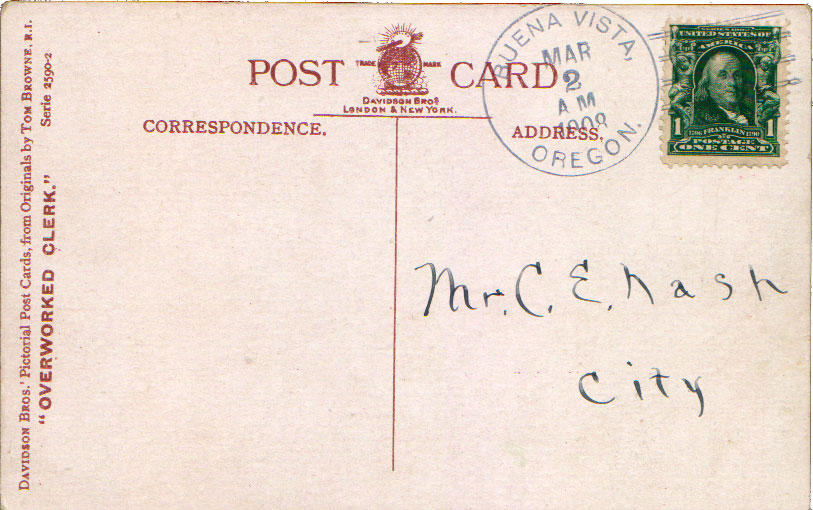 DAVIDSON BROS.' Pictorial Post Cards, from Originals by TOM BROWNE, R.I.
Serie 2590-2
"OVERWORKED CLERK."
POST CARD
TRADE MARK
DAVIDSON BROS
LONDON & NEW YORK.
CORRESPONDENCE.
ADDRESS,
BUENA VISTA,
MAR
2
AM
1908
OREGON.
UNITED STATES OF
AMERICA
1 1706 FRANKLIN 1790 1
POSTAGE
ONE CENT
Mr. C. E. Nash
City